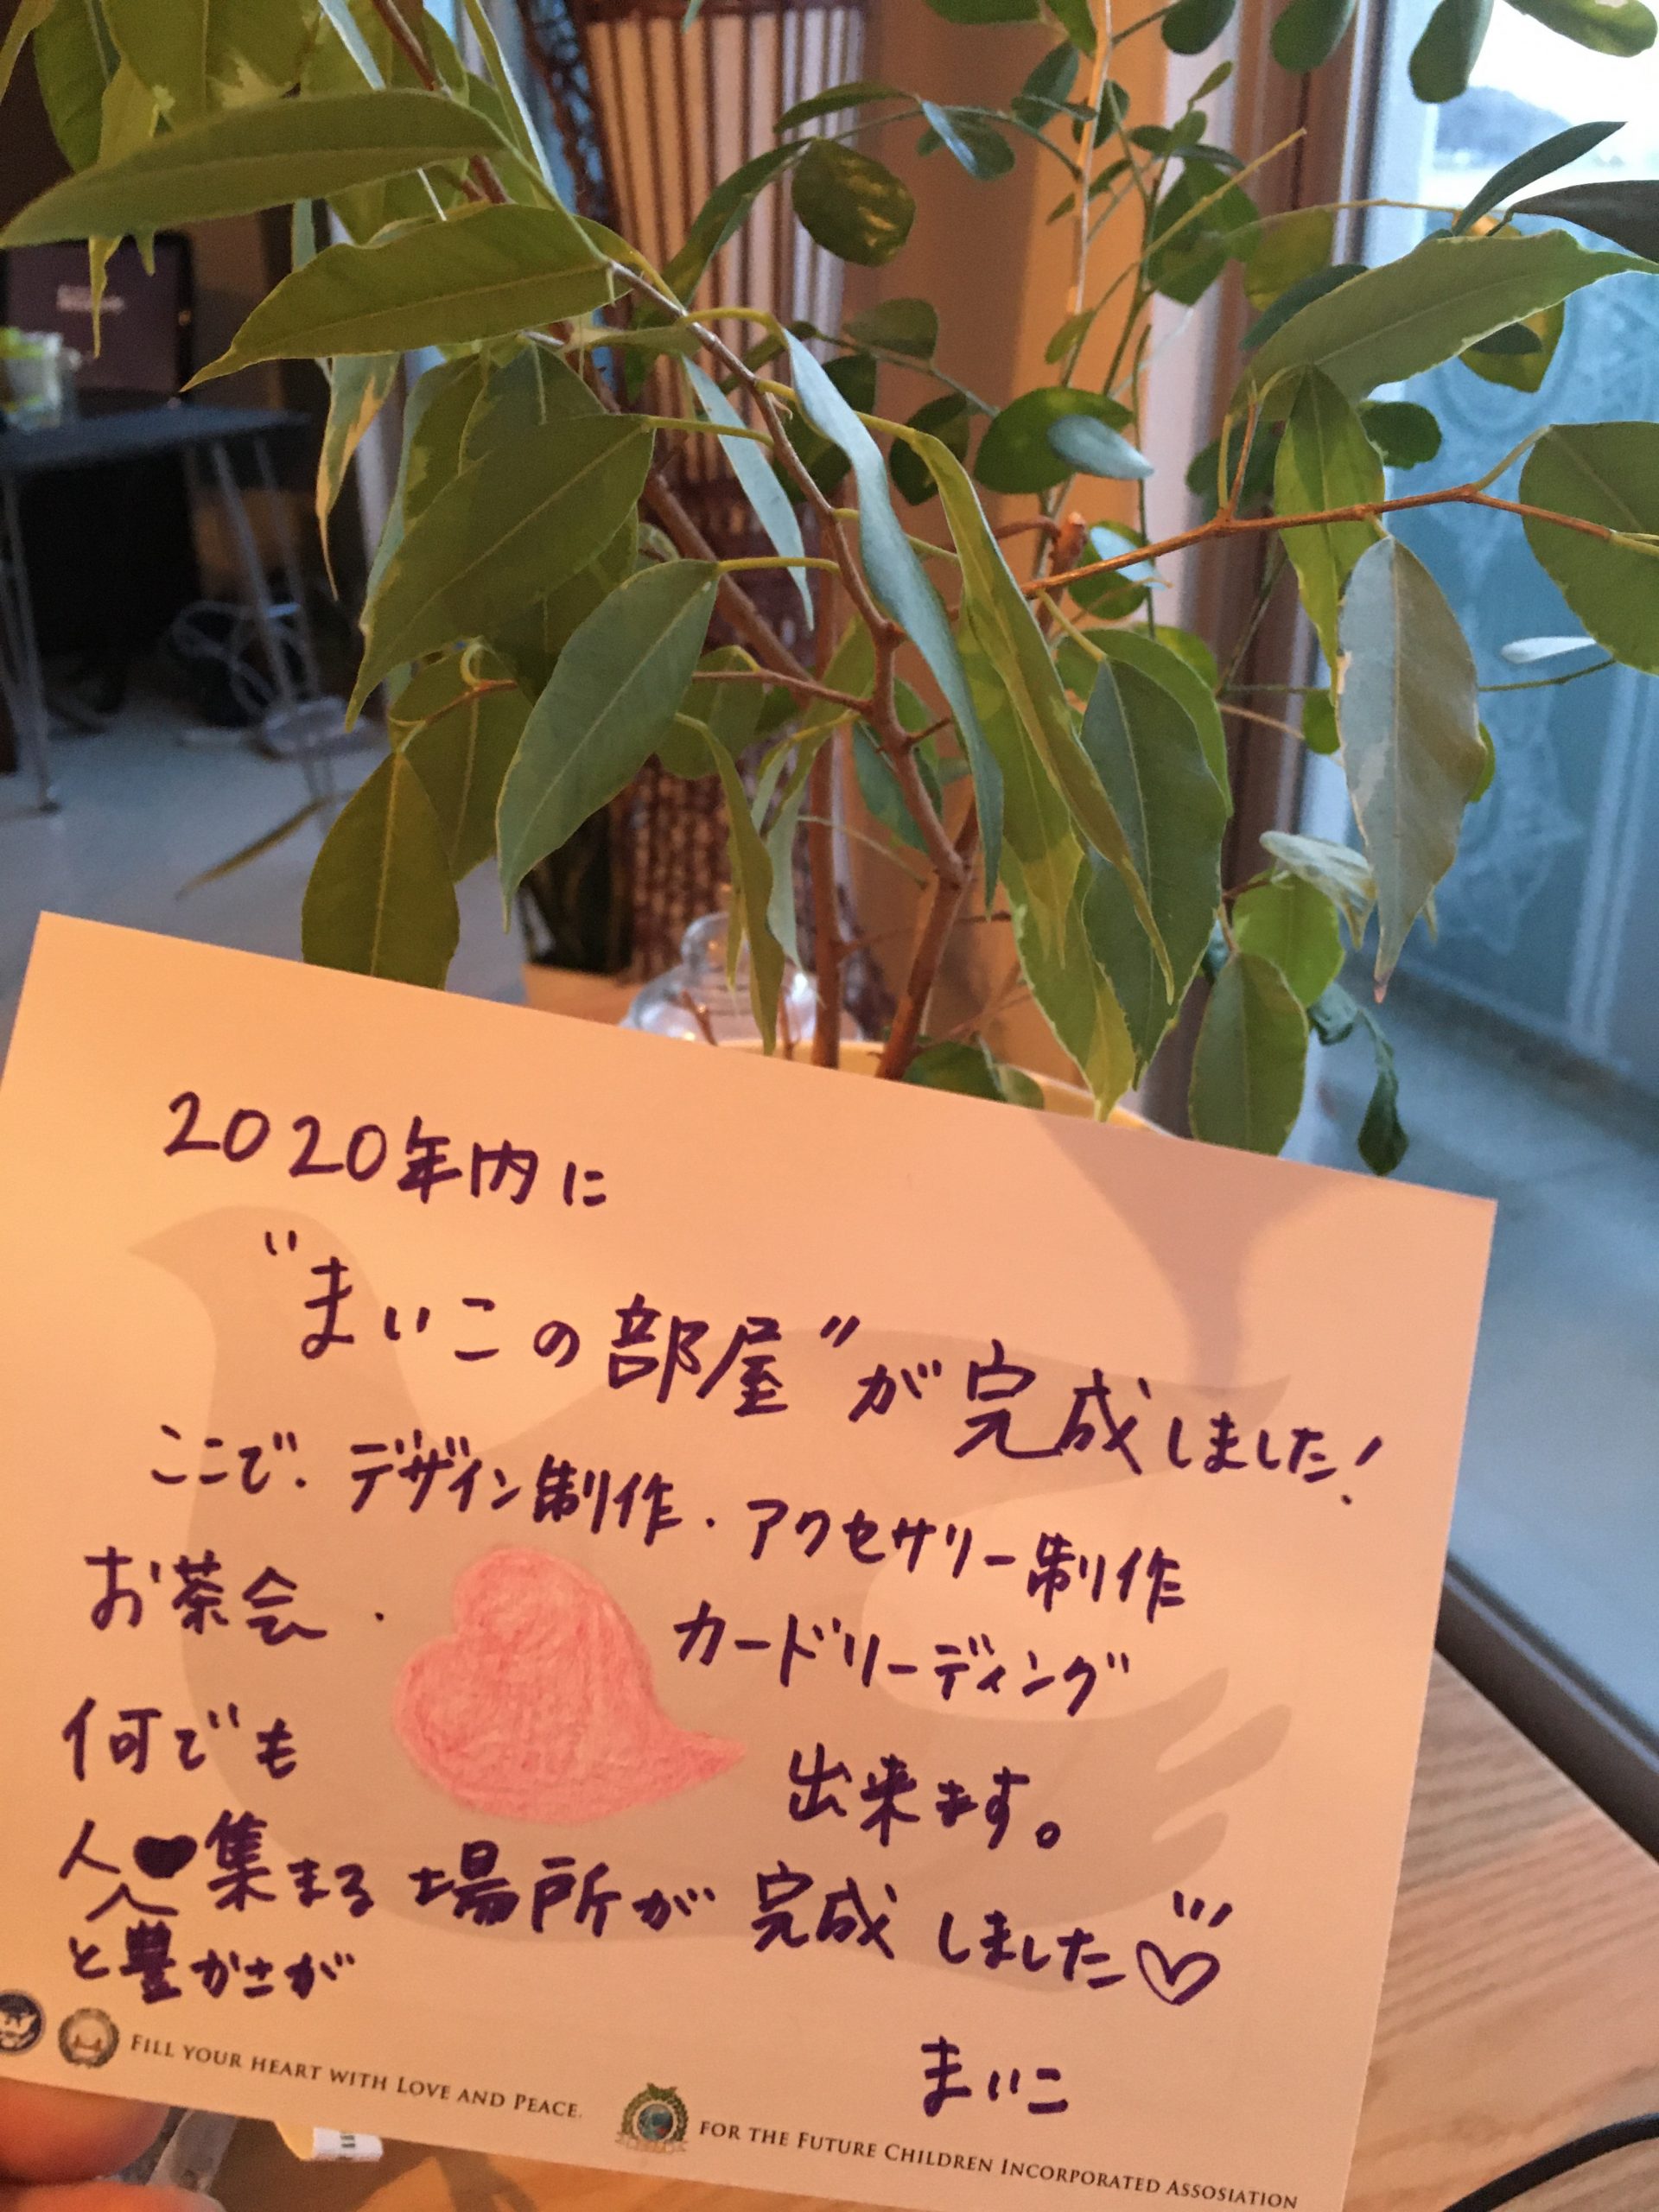 2020年内に
"まいこの部屋"が完成しました!
ここで.デザイン制作・アクセサリー制作
お茶会・カードリーディング
何でも出来ます。
人♥集まる場所が完成しました♡
と豊かさが
まいこ
FILL YOUR HEART WITH LOVE AND PEACE.
FOR THE FUTURE CHILDREN INCORPORATED ASSOSIATION